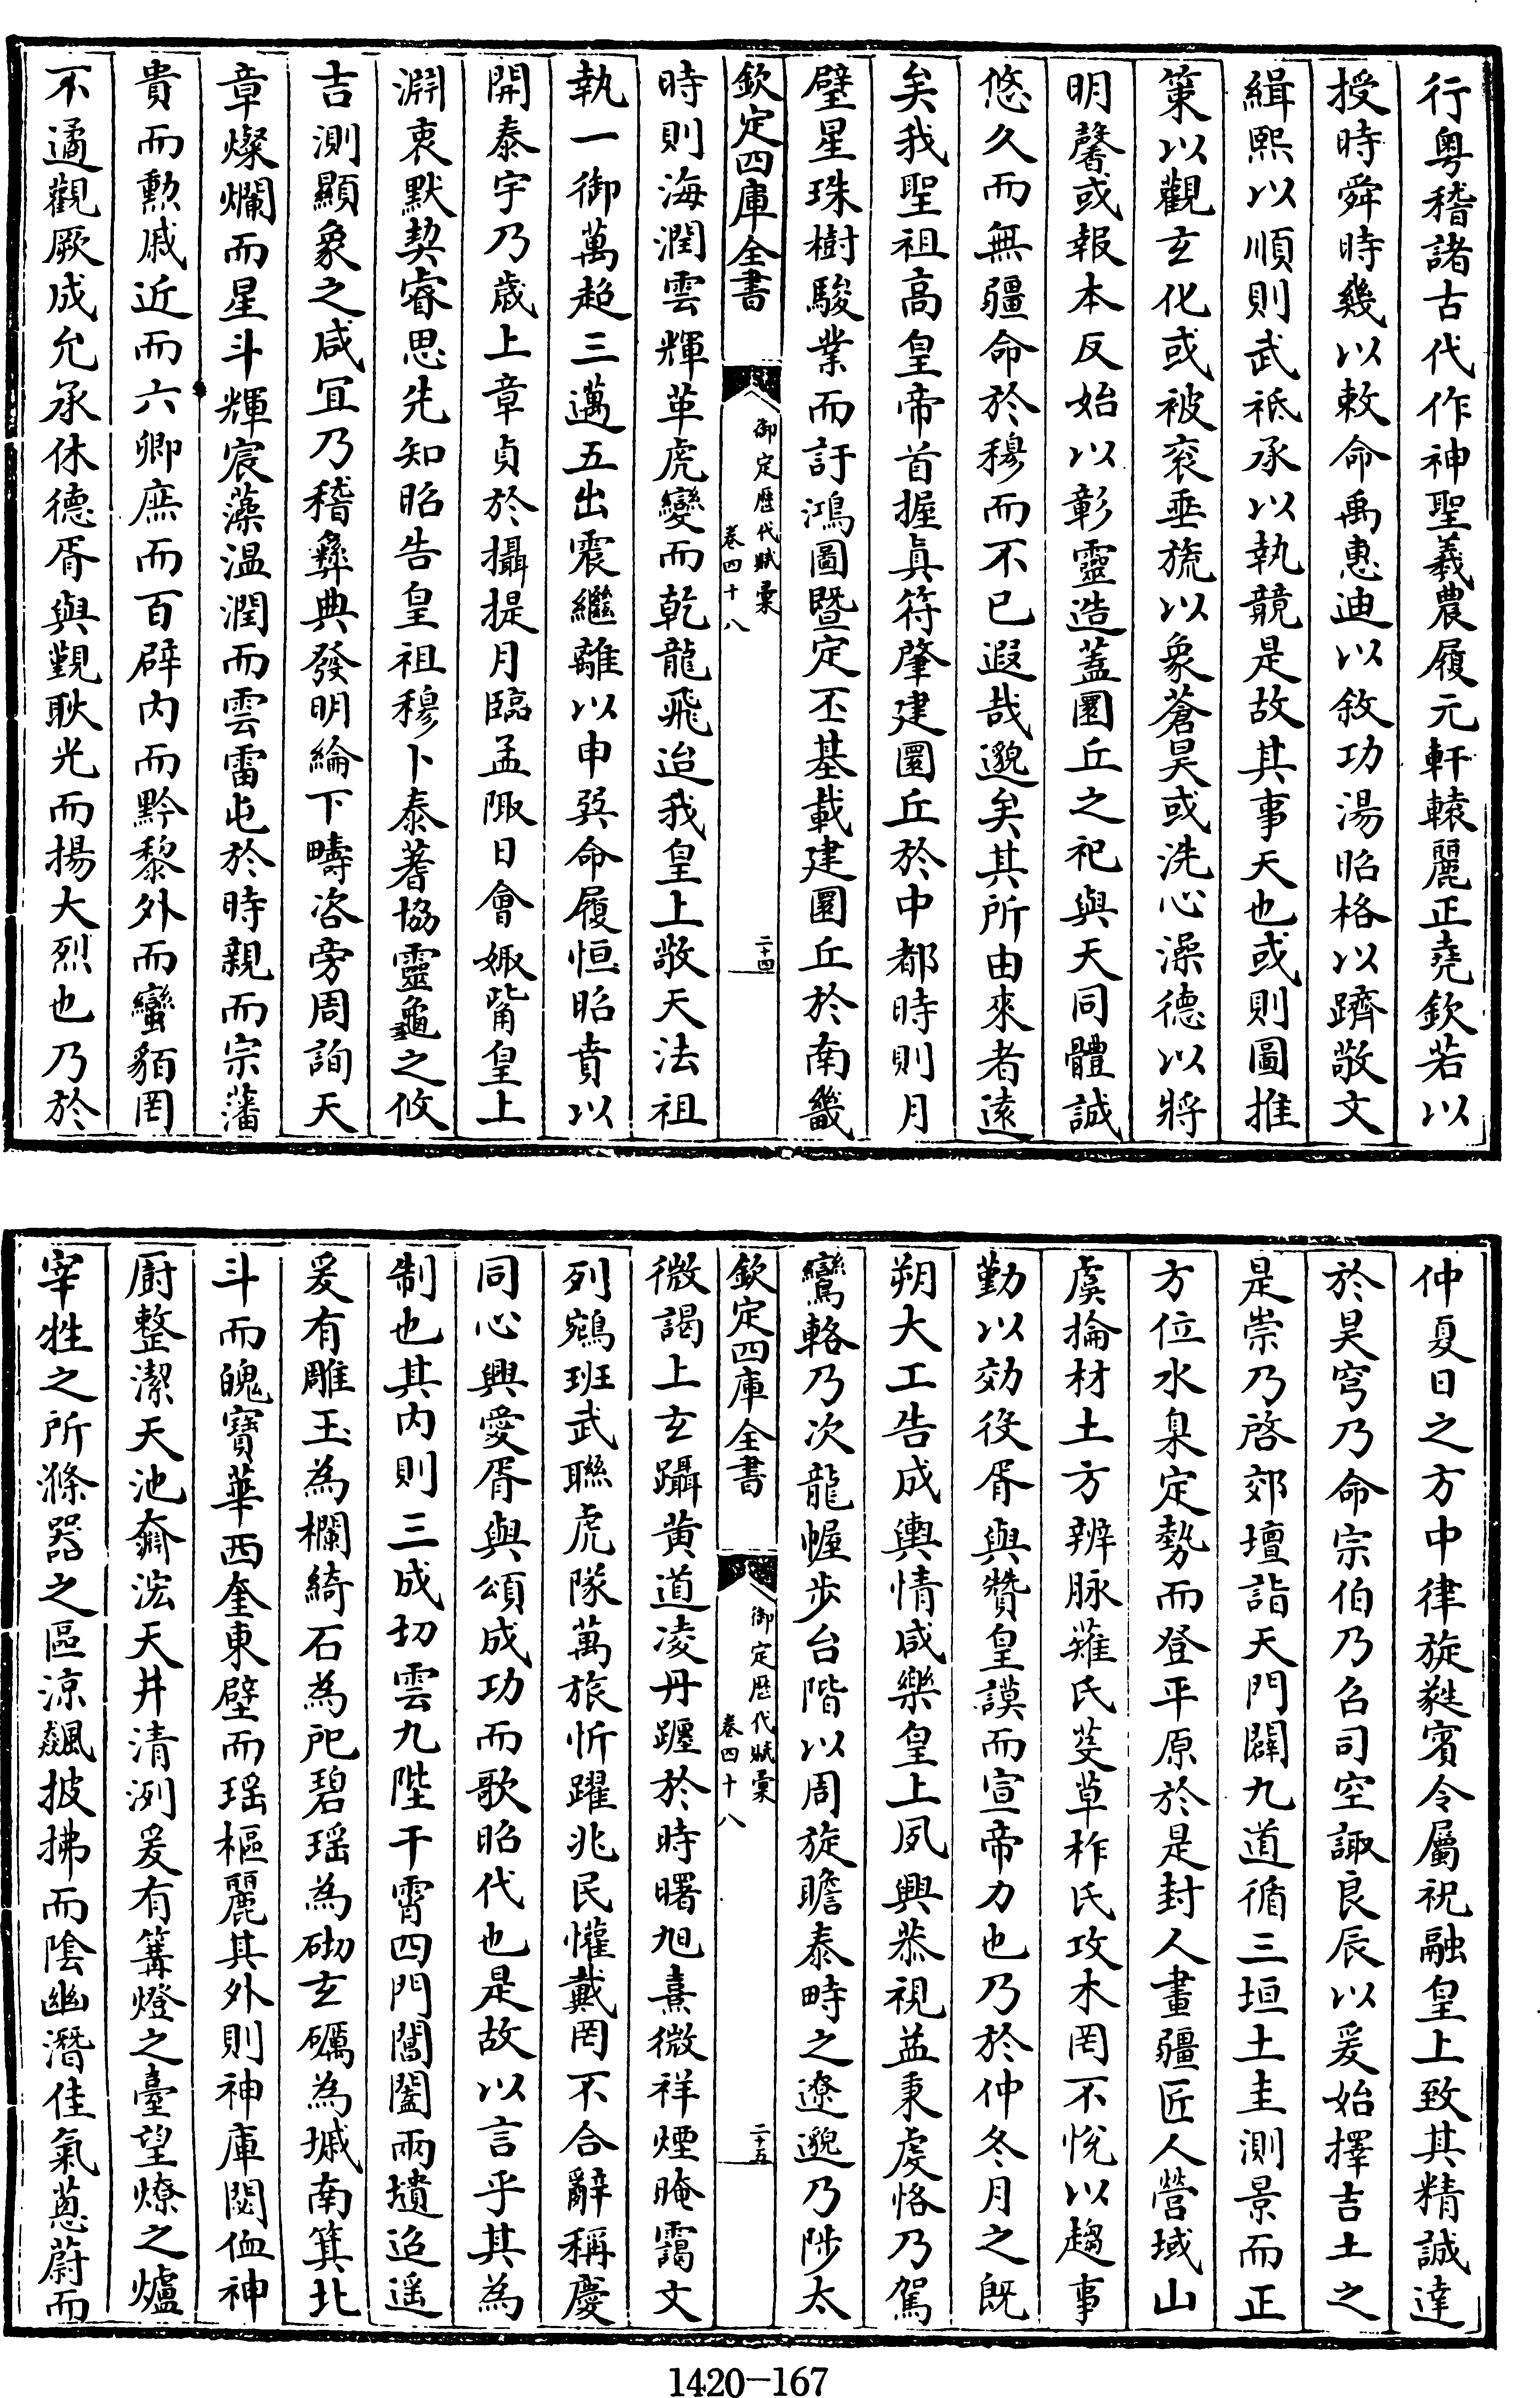 行粤稽諸古代作神聖羲農履元軒轅麗正堯欽若以
授時舜時幾以敕命禹惠迪以敘功湯昭格以躋敬文
緝熙以順則武祗承以執競是故其事天也或則圖推
策以觀玄化或被衮垂旒以象蒼昊或洗心澡德以將
明馨或報本反始以彰靈造蓋圜丘之祀與天同體誠
悠久而無疆命於穆而不已遐哉邈矣其所由來者遠
矣我聖祖高皇帝首握真符肇建圜丘於中都時則月
璧星珠樹駿業而訏鴻圖暨定丕基載建圜丘於南畿
欽定四庫全書
御定歴代賦彙
卷四十八
二十四
時則海潤雲輝革虎變而乾龍飛迨我皇上敬天法祖
執一御萬超三邁五出震繼離以申巽命履恒昭賁以
開泰宇乃歲上章貞於攝提月臨孟陬日會娵觜皇上
淵衷默契睿思先知昭告皇祖穆卜泰蓍協靈龜之攸
吉測顯象之咸宜乃稽彝典發明綸下疇咨旁周詢天
章燦爛而星斗輝宸藻温潤而雲雷屯於時親而宗藩
貴而勲戚近而六卿庶而百辟内而黔黎外而蠻貊罔
不遹觀厥成允承休德胥與覲耿光而揚大烈也乃於
仲夏日之方中律旋蕤賓令屬祝融皇上致其精誠達
於昊穹乃命宗伯乃召司空諏良辰以爰始擇吉土之
是崇乃啓郊壇詣天門闢九道循三垣土圭測景而正
方位水臬定勢而登平原於是封人畫疆匠人營域山
虞掄材土方辨脉薙氏芟草柞氏攻木罔不悅以趨事
勤以効役胥與贊皇謨而宣帝力也乃於仲冬月之既
朔大工告成輿情咸樂皇上夙興恭視益秉虔恪乃駕
鸞輅乃次龍幄步台階以周旋瞻泰畤之遼邈乃陟太
欽定四庫全書
御定歴代賦彙
卷四十八
二十五
微謁上玄躡黄道凌丹躔於時曙旭熹微祥煙晻靄文
列鵷班武聯虎隊萬旅忻躍兆民懽戴罔不合辭稱慶
同心興愛胥與頌成功而歌昭代也是故以言乎其為
制也其内則三成切雲九陛干霄四門閶闔兩壝迢遥
爰有雕玉為欄綺石為戺碧瑶為砌玄礪為墄南箕北
斗而瑰寶華西奎東壁而瑶樞麗其外則神庫閟侐神
厨整潔天池奫浤天井清洌爰有篝燈之臺望燎之爐
宰牲之所滌器之區涼飆披拂而陰幽潛佳氣蔥蔚而
1420-167